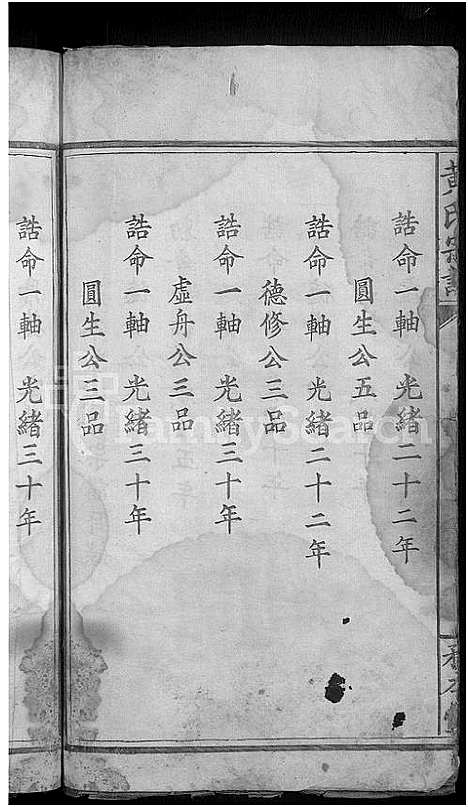 黃氏宗譜
誥命一軸 光緒二十二年
圓生公五品
誥命一軸 光緒二十二年
德修公三品
誥命一軸 光緒三十年
虛舟公三品
誥命一軸 光緒三十年
圓生公三品
誥命一軸 光緒三十年
FamilySearch